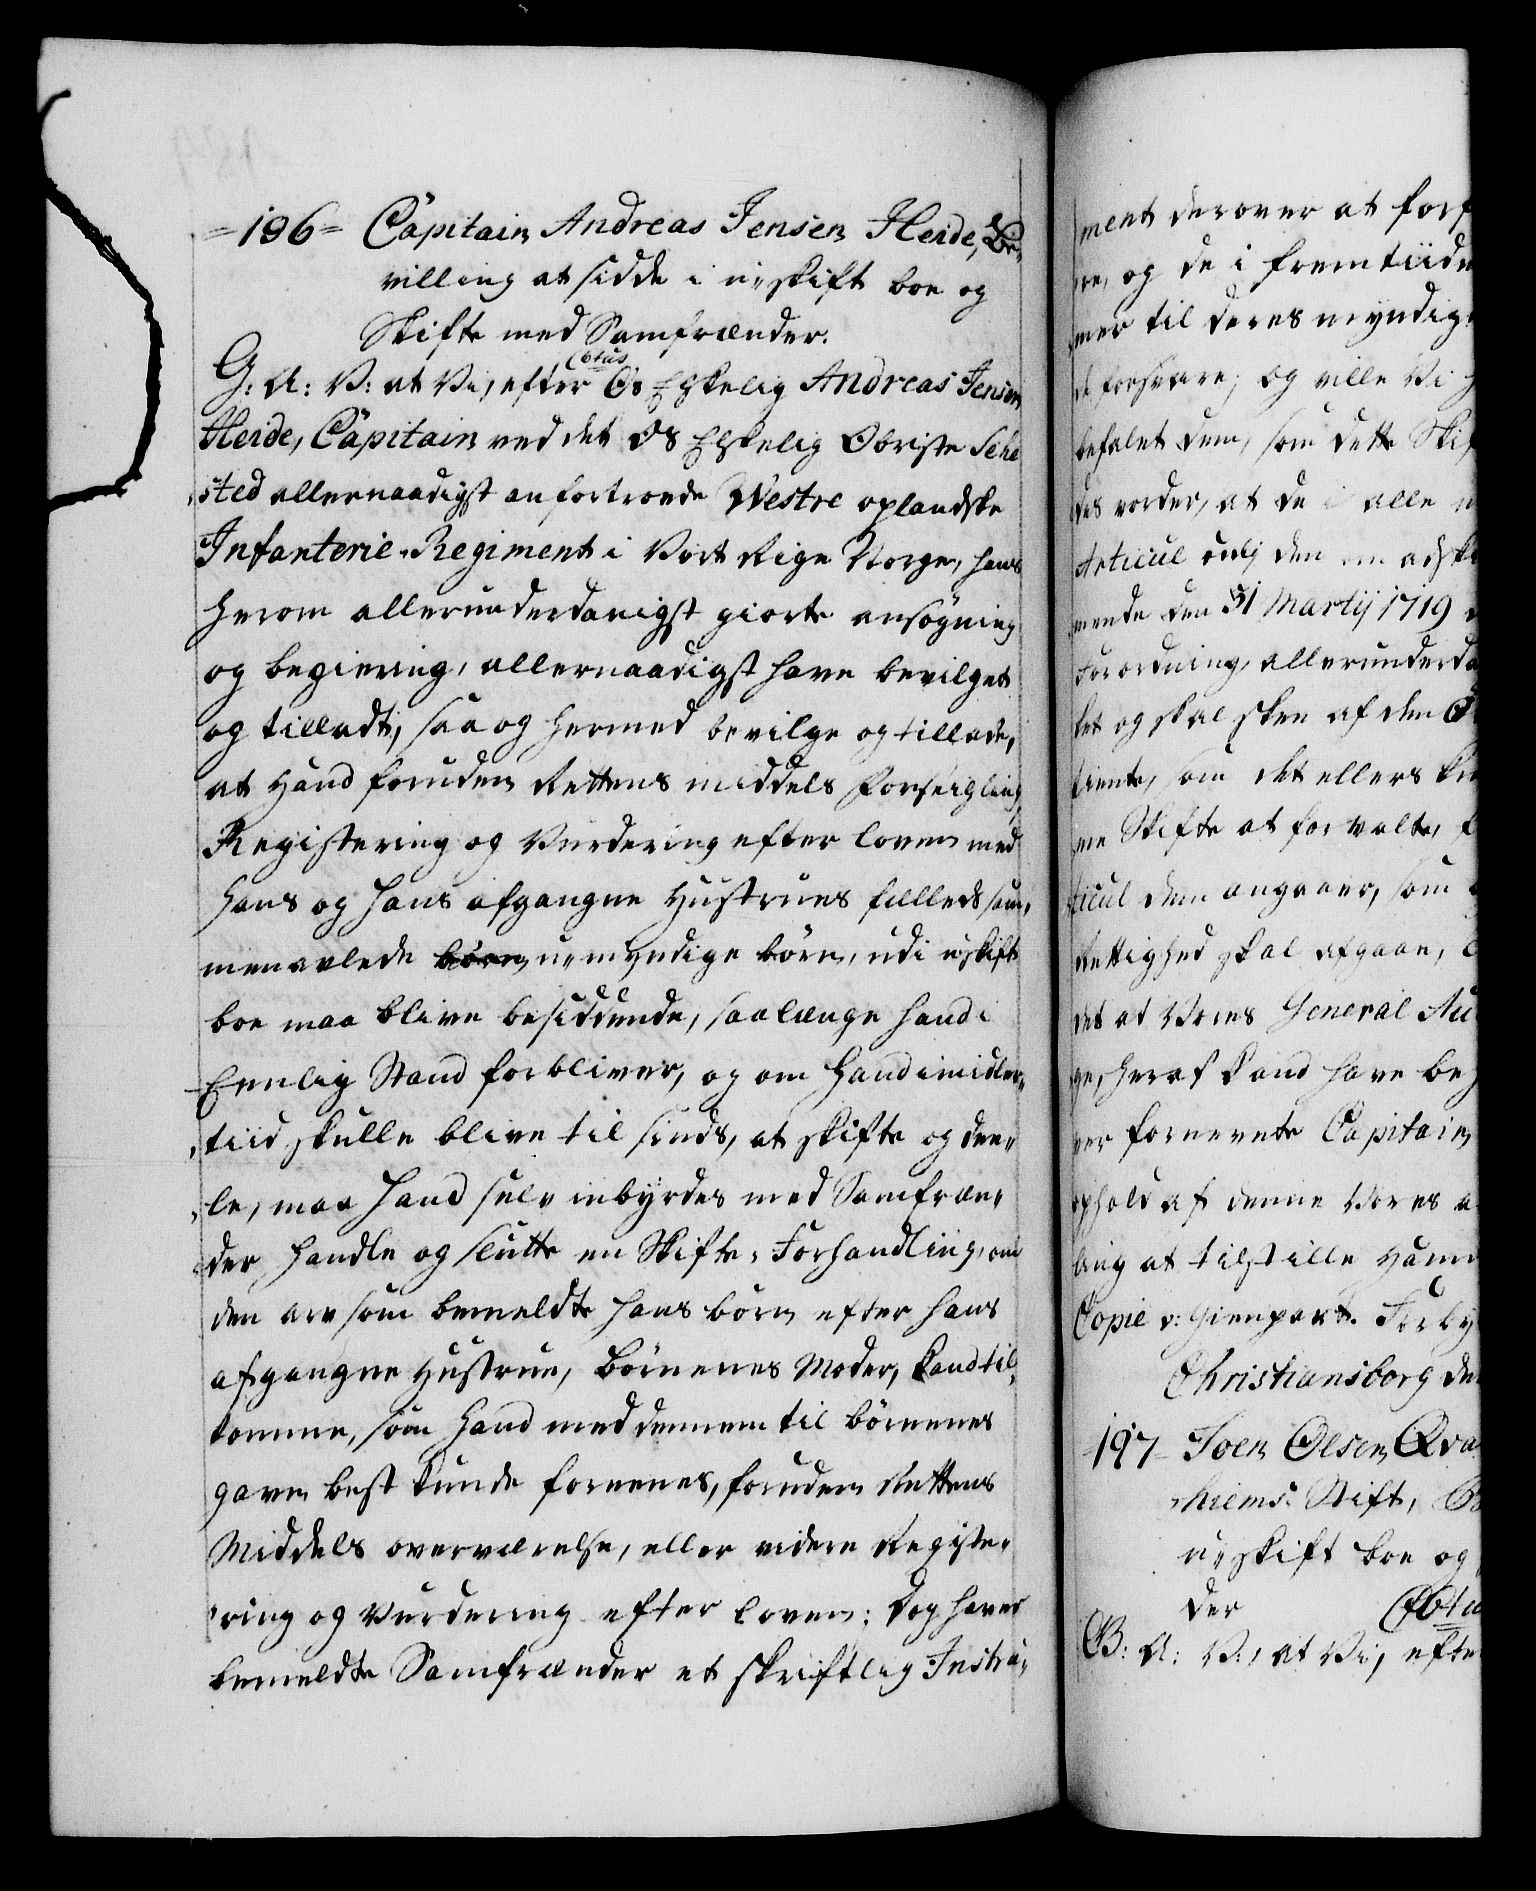 =196= Capitain Andreas Jensen Heide, Be-
villing at sidde i u-skift boe og
Skifte med Samfrænder.
G: A: V: at Vi, efter Os Elskelig Andreas Jensen
Heide, Capitain ved det Os Elskelig Obriste Sehe
sted allernaadigst anfortroede Westre oplandske
Infanterie-Regiment i Vort Rige Norge, hans
herom allerunderdanigst giorte ansøgning
og begiering, allernaadigst have bevilget
og tilladt, saa og hermed bevilge og tillade,
at Hand foruden Rettens middels forseigling,
Registering og Vurdering efter loven med
hans og hans afgangne Hustrues fælleds sam-
menavlede børn u-myndige børn, udi uskift
boe maa blive besiddende, saalænge hand i
Eenlig Stand forbliver, og om Hand imidler-
tiid skulle blive til sinds, at skifte og dee-
le, maa hand selv inbyrdes med Samfræn-
der handle og slutte en Skifte-Forhandling, om
den arv som bemeldte hans børn efter hans
afgangne Hustrue, Børnenes Moder, kand til-
komme, som hand med dennem til børnenes
gavn best kunde forenes, foruden Rettens
Middels overværelse, eller videre Registe-
ring og Vurdering efter loven; dog haver
bemeldte Samfrænder et skriftlig Instru-
ment derover at forf
re, og de i fremtiide
mer til deres myndig
at forsvare; og ville Vi h
befalet dem, som dette Skif
des vorder, at de i alle m
Articul
mende den 31 Martij 1719
Forordning, allerunderda
let og skal skee af den
tiente, om det ellers kun
me Skifte at forvalte, f
ticul dem angaaer, som
Rettighed skal afgaae,
det at Vores General Au
ge, heraf kand have beh
ver fornevnte Capitain
ophold af denne Vores a
ling at tilstille Hamm
Copie v: Gienpart. Forby
Christiansborg de
-197- Joen Olsen Qva
hiems: Stift, B
u-skift boe og
der
G: A: V:, at Vi, efte